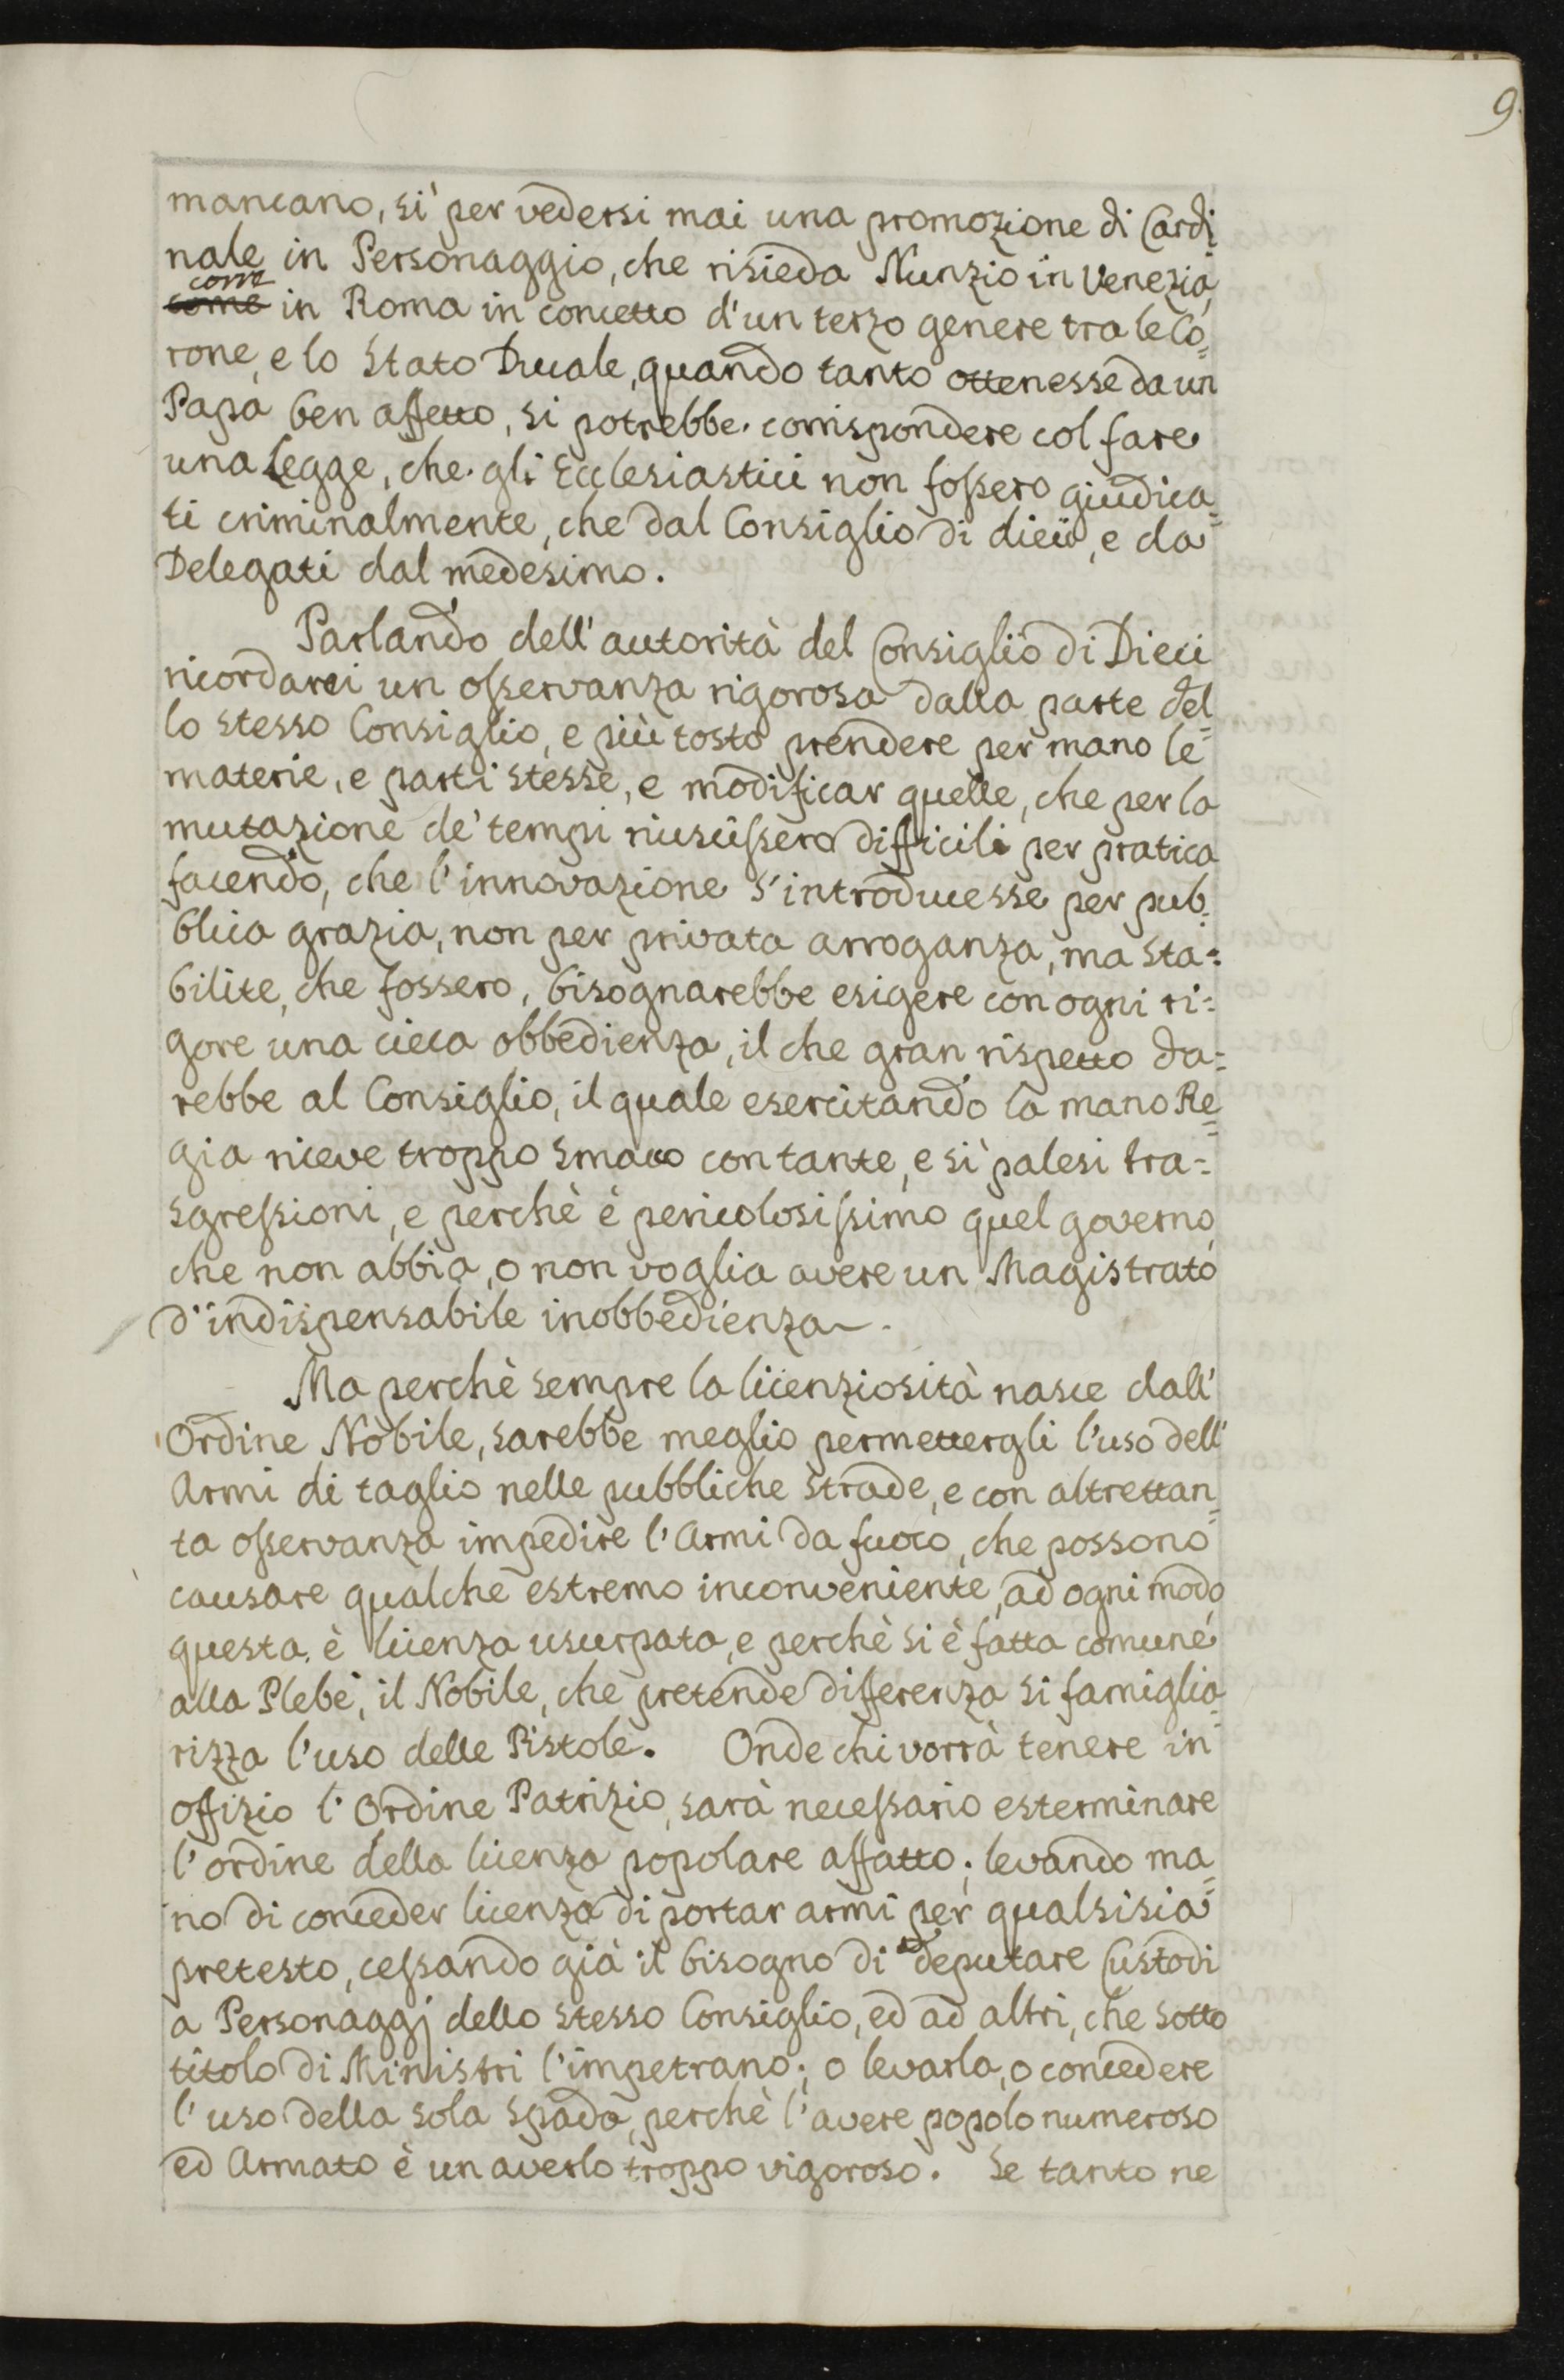 9.
mancano, sì per vedersi mai una promozione di Cardi
nale in Personaggio, che risieda Nunzio in Venezia,
come
come in Roma in concetto d'un terzo genere tra le Co=
rone, e lo Stato Ducale, quando tanto ottenesse da un
Papa ben affetto, si potrebbe corrispondere col fare
una Legge, che gli Ecclesiastici non fossero giudica=
ti criminalmente, che dal Consiglio di dieci, e da
Delegati dal medesimo.
Parlando dell'autorità del Consiglio di Dieci
ricordarei un osservanza rigorosa dalla parte del=
lo stesso Consiglio, e più tosto prendere per mano le
materie, e parti stesse, e modificar quelle, che per la
mutazione de' tempi riuscissero difficili per pratica
facendo, che l'innovazione s'introducesse per pub=
blica grazia, non per privata arroganza, ma sta=
bilite, che fossero, bisognarebbe esigere con ogni ri=
gore una cieca obbedienza, il che gran rispetto da=
rebbe al Consiglio, il quale esercitando la mano Re=
gia riceve troppo smacco con tante, e sì palesi tra=
sgressioni, e perchè è pericolosissimo quel governo,
che non abbia, o non voglia avere un Magistrato
d'indispensabile inobbedienza.
Ma perchè sempre la licenziosità nasce dall'
Ordine Nobile, sarebbe meglio permettergli l'uso dell'
Armi di taglio nelle pubbliche strade, e con altrettan=
ta osservanza impedire l'Armi da fuoco, che possono
causare qualche estremo inconveniente, ad ogni modo
questa è licenza usurpata, e perchè si è fatta comune
alla Plebe, il Nobile, che pretende differenza si famiglia=
rizza l'uso delle Pistole. Onde chi vorrà tenere in
offizio l'Ordine Patrizio, sarà necessario esterminare
l'ordine della licenza popolare affatto; levando ma=
no di conceder licenza di portar armi per qualsisia
pretesto, cessando già il bisogno di deputare Custodi
a Personaggj dello stesso Consiglio, ed ad altri, che sotto
titolo di Ministri l'impetrano; o levarla, o concedere
l'uso della sola spada, perchè l'avere popolo numeroso
ed Armato è un averlo troppo vigoroso. Se tanto ne